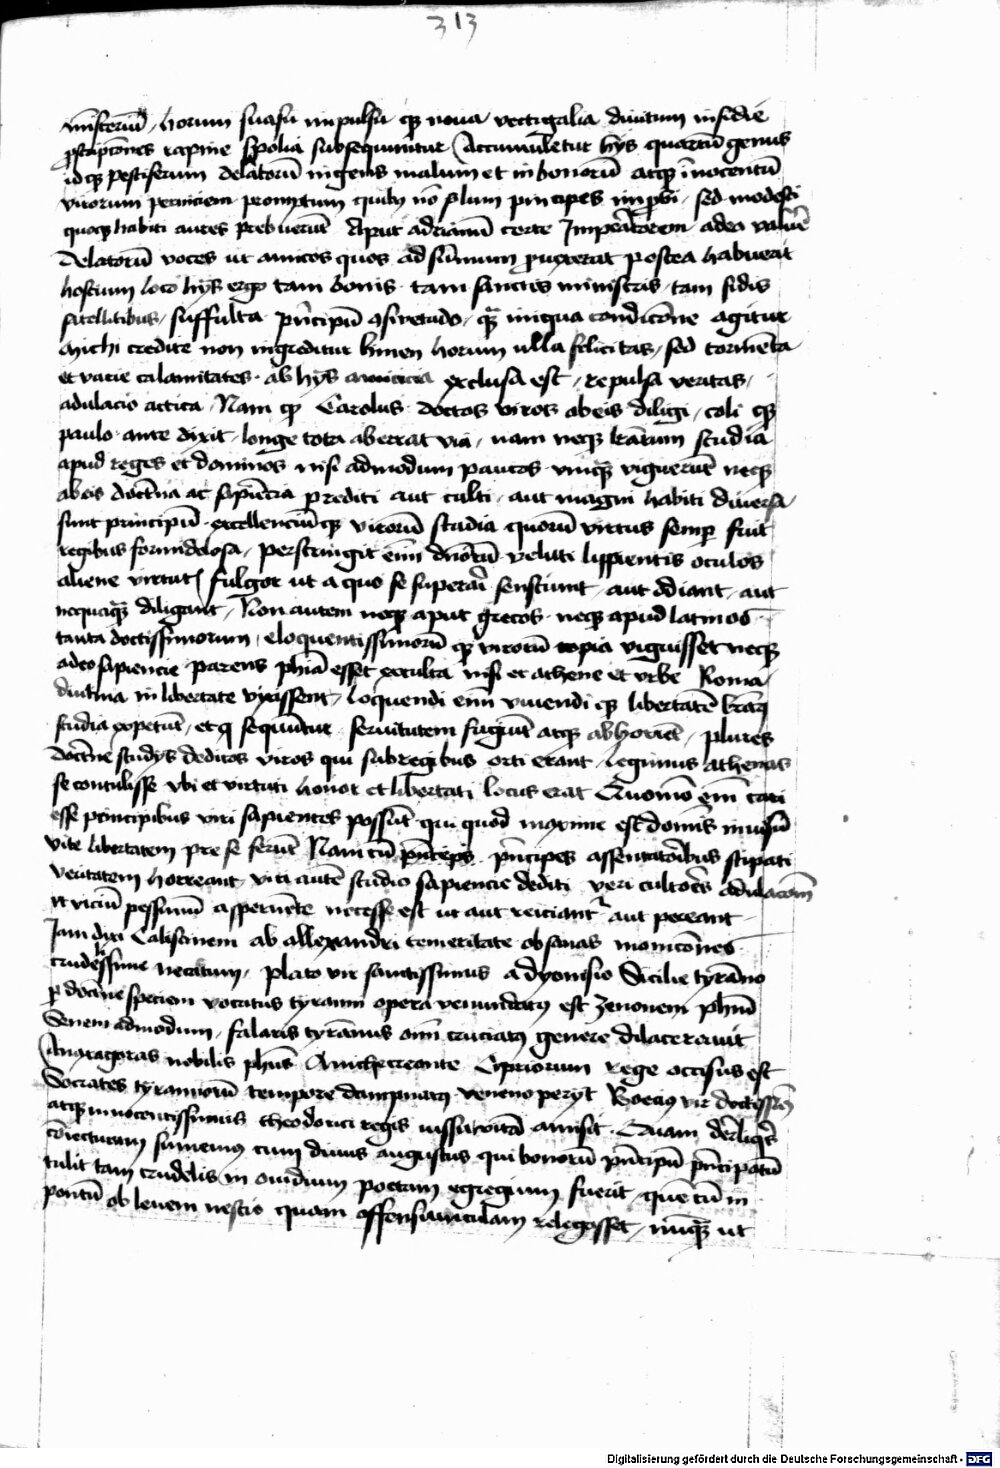 313
misteriū / horum suasu impulsu qꝫ noua vectigalia diuitum insidie
ꝓscriptiones rapine spolia subsequuntur Accumuletur hijs quartū genus
id qꝫ pestiferum delatorū ingens malum et in bonorū atqꝫ īnocentū
virorum perniciem promptum quibꝫ nō solum principes improbi / sed modesti
quoqꝫ habiti aures prebuerūt Aput adrianū certe Imperatorem adeo valuē
Delatorū voces ut amicos quos ad sūmum prouexerat postea habuerit
hostium loco hijs ergo tam bonis tam sanctis ministris / tam fidis
satellitibus / suffulta prīcipū ꝯsuetudo / qꝫ iniqua condicōne agitur
Michi credite non ingreditur limen horum ulla felicitas / sed tormēta
et varie calamitates ab hijs amicicia exclusa est / repulsa veritas /
adulacio attica / Nam qꝫ Carolus doctos viros ab eis diligi / coli qꝫ
paulo ante dixit longe tota aberrat via / nam neqꝫ lrārum studia
apud reges et dominos nisi admodum paucos vmqꝫ viguerūt neqꝫ
ab eis doctrīa ac sapiētia prediti aut culti / aut magni habiti diuersa
sunt principū excellenciū qꝫ virorū studia quorū virtus semper fuit
regibus formidolosa / perstringit enī dn̄orū veluti lippientis oculos
aliene virtutis fulgor ut a quo se superari senciunt / aut odiant / aut
nequaqꝫ diligant / Non autem neqꝫ aput grecos neqꝫ apud latinos
tanta doctissimorum / eloquentissimorū qꝫ virorū copia viguisset neqꝫ
adeo sapiencie parens ph̄ia esset exculta nisi et athene et vrbe Roma
diutina in libertate vixissent / loquendi enī viuendi qꝫ libertatē lrārꝫ
studia expetunt / et q̄ sequūtur seruitutem fugiūt atqꝫ abhorrēt / plures
doctrīe studijs deditos viros qui sub regibus orti erant / legimus athenas
se contulisse vbi et virtuti honor et libertati locus erat Quomō enī cari
esse principibus viri sapientes possūt qui quod maxime est domīs inuisū
vite libertatem pre se ferūt Nam cū prīceps prīcipes assentatoribus stipati
veritatem horreant viri autē studio sapiencie dediti veri cultores adulacōm
ut viciū pessimū aspernēte necesse est ut aut reiciant aut pereant
Iam dixi Calistinem ab allexandri temeritate ob sanas monicōnes
crudelissime necatum / Plato vir sanctissimus a dyonisio Sicilie tyrāno
ꝑ doctrīe speciem vocatus tyranni opera venundatꝫ est Zenonem ph̄m
Senem admodum / falaris tyrānus omī cruciatꝫ genere dilacerauit
Anaxagoras nobilis ph̄us Anichecreonte Cypriorum rege occisus est
Socrates tyrannorū tempore dampnatꝫ veneno perijt Boeciꝫ vir doctissimꝫ
atqꝫ innocentissimus theodorici regis iussu vitā amisit Quam
coniecturam sumemꝫ cum diuus augustus qui bonorū prīcipū prīcipatū
tulit tam crudelis in ouidium poetam egregium fuerit / quē cū in
pontū ob leuem nescio quam offensiunculam relegasset / nūqꝫ ut